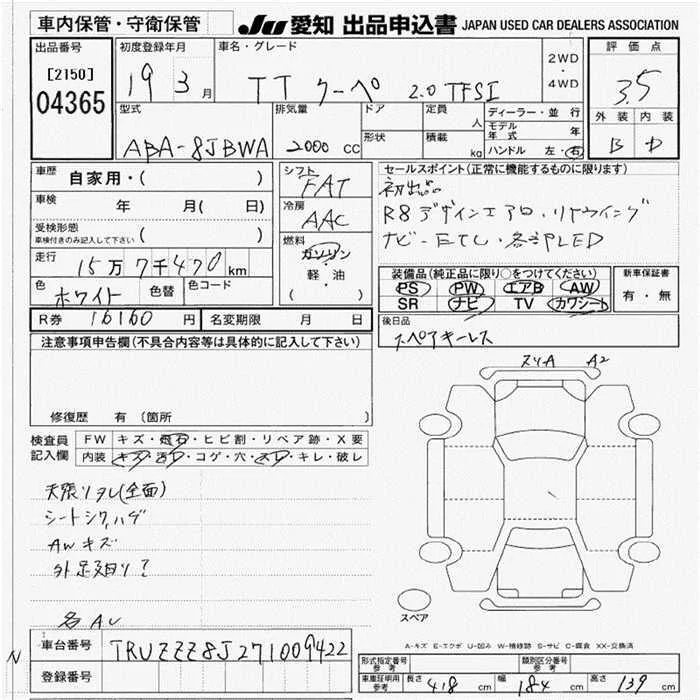 車内保管・守衛保管
JU 愛知 出品申込書 JAPAN USED CAR DEALERS ASSOCIATION
出品番号
[2150]
04365
初度登録年月
19 3 月
車名・グレード
TT クーペ 2.0 TFSI
2WD
・
4WD
評価点
3.5
外装 内装
B D
型式
ABA-8JBWA
排気量
2000 cc
ドア
形状
定員
人
積載
kg
ディーラー・並行
モデル年式 年
ハンドル 左・右
車歴 自家用・( )
車検 年 月( 日)
受検形態
車検付きのみ記入して下さい ( )
走行 15万7千470 km
色 ホワイト 色替 色コード
R券 16160 円 名変期限 月 日
シフト
FAT
冷房
AAC
燃料
ガソリン
・
軽・油
( )
セールスポイント(正常に機能するものに限ります)
初出品
R8デザインエアロ・リヤウイング
ナビ-ETC・各部LED
装備品(純正品に限り○をつけてください)
PS PW エアB AW
SR ナビ TV カワシート
新車保証書
有・無
後日品
スペアキーレス
注意事項申告欄(不具合内容等は具体的に記入して下さい)
修復歴 有(箇所
検査員
記入欄
FW キズ・飛石・ヒビ割・リペア跡・X要
内装 キズ・汚れ・コゲ・穴・スレ・キレ・破レ
天張リタレ(全面)
シートシワ,ハゲ
AWキズ
外足廻り?
各AU
スリA A2
スペア
A-キズ E-エクボ U-凹み W-補修跡 S-サビ C-腐食 XX-交換済
N
車台番号 TRUZZZ8J271009422
登録番号
形式指定番号
参考
類別区分番号
参考
車庫証明用
参考
長さ 418 cm 幅 184 cm 高さ 139 cm